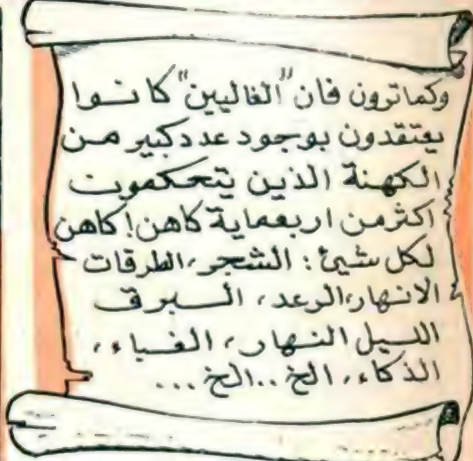 وكماترون فان "الغاليين" كانوا
يعتقدون بوجود عدد كبير من
الكهنة الذين يتحكموت
اكثر من اربعماية كاهن! كاهن
لكل شيئ: الشجر، الطرقات
الانهار، الرعد، البرق
الليل النهار، الغباء،
الذكاء، الخ.. الخ...